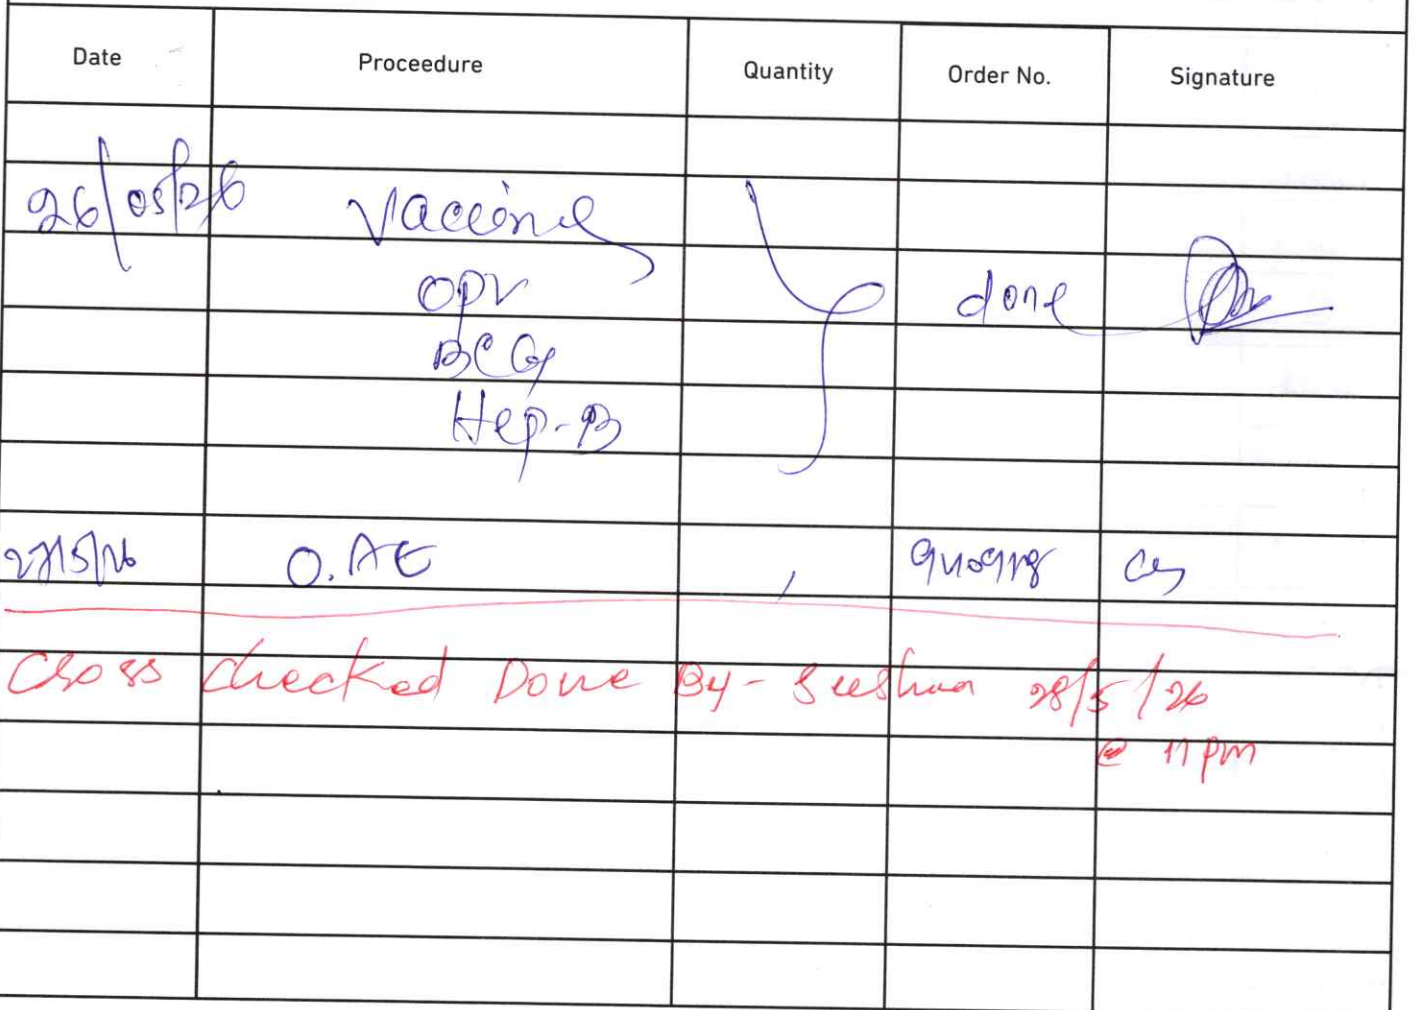 Date Proceedure Quantity Order No. Signature
26/05/26 Vaccine
OPV done
BCG
Hep-B
27/5/26 O.AE
Cross checked Done By -
28/5/26
@ 11 pm